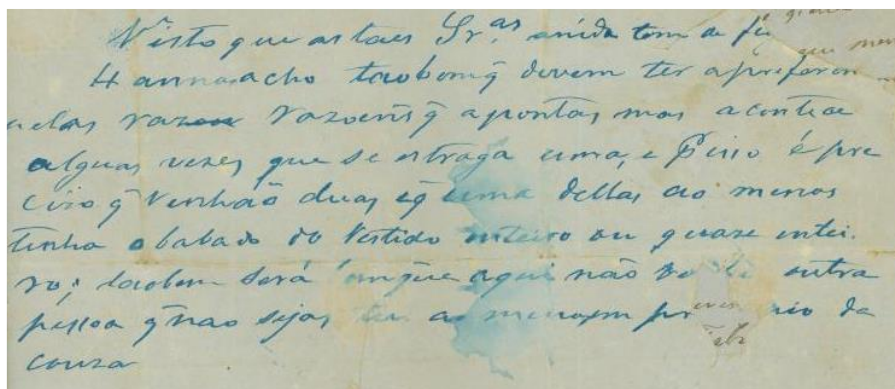 Visto que as taes Sr.as ainda tem de
4 annas acho taobem q̃ devem ter a preferen
pelas razoens q̃ apontas mas acontece
alguas vezes que se estraga uma, e p isso é pre
cizo q̃ venhão duas e q̃ uma dellas ao menos
tenha o babado do vestido inteiro ou quaze intei.
ro; taobem será que aqui não outra
pessoa q̃ nao sejas tu a da
couza